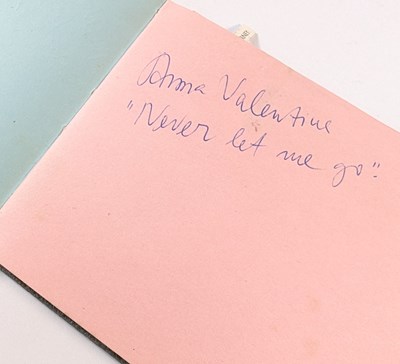 Anna Valentine
"Never let me go".